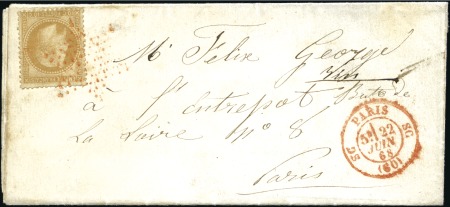 Mr Felix George
vin
à l'entrepot
La Loire no 6
Paris
PARIS
SC SC
5E 22
JUIN
68
(60)